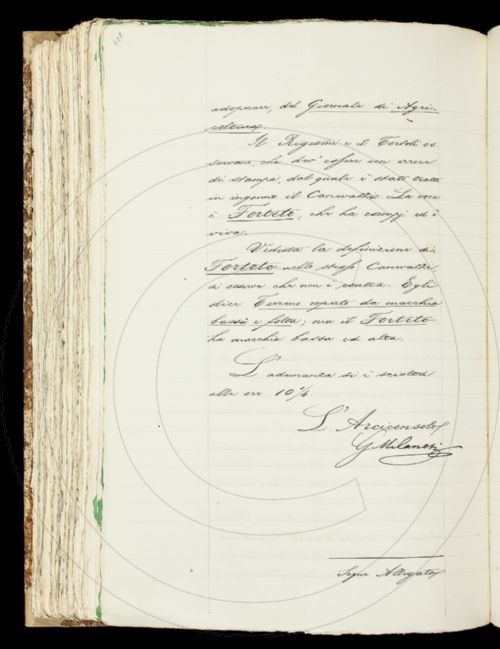 adoprare, del Giornale di Agri-
coltura.
Il Rigutini e il Tortoli os-
servano, che dev'essere un errore
di stampa, dal quale è stato tratto
in inganno il Canevazzi. La voce
è Forteto, che ha esempj ed è
viva.
Veduta la definizione di
Forteto nello stesso Canevazzi
si osserva che non è esatta. Egli
dice Terreno coperto da macchia
bassa e folta; ma il Forteto
ha macchia bassa ed alta.
L'adunanza si è sciolta
alle ore 10 1/4.
L'Arciconsolo
G Milanesi
Segue Allegato